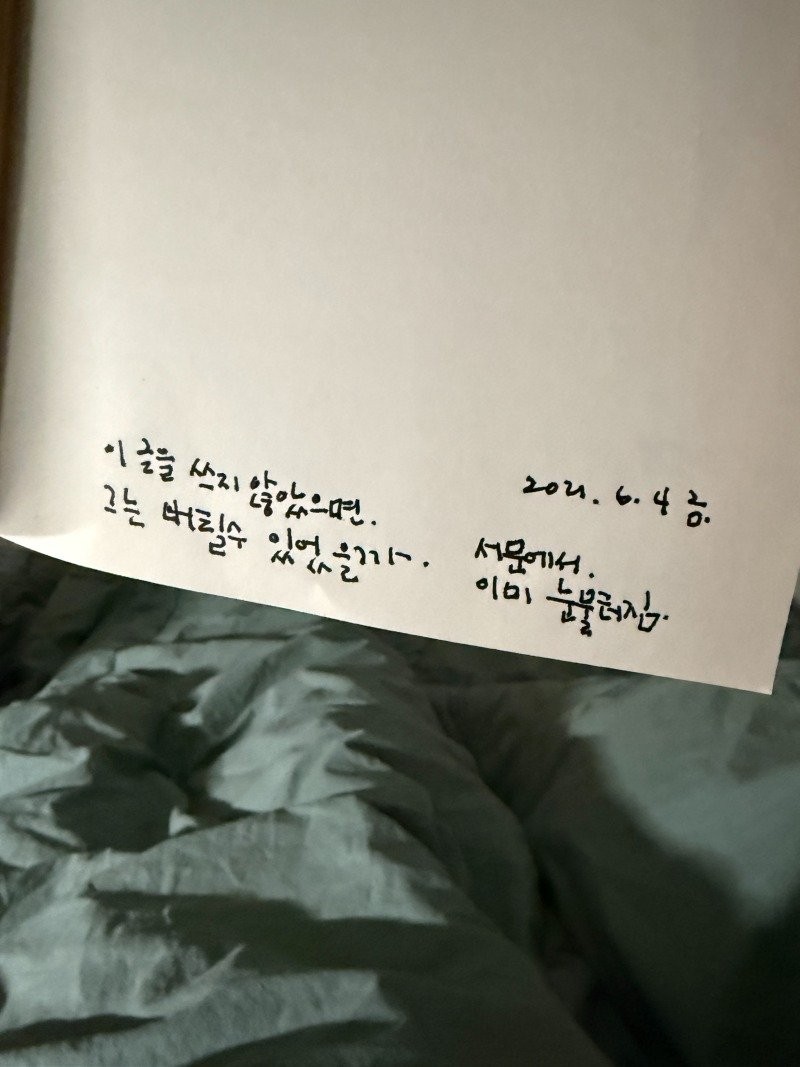 이 글을 쓰지 않았으면.
그는 버틸수 있었을까.
2021. 6. 4 금.
서문에서.
이미 눈물터짐.